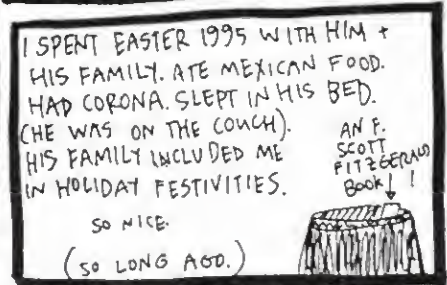 I SPENT EASTER 1995 WITH HIM +
HIS FAMILY. ATE MEXICAN FOOD.
HAD CORONA. SLEPT IN HIS BED.
(HE WAS ON THE COUCH).
HIS FAMILY INCLUDED ME
IN HOLIDAY FESTIVITIES.
SO NICE.
(SO LONG AGO.)
AN F.
SCOTT
FITZGERALD
BOOK!